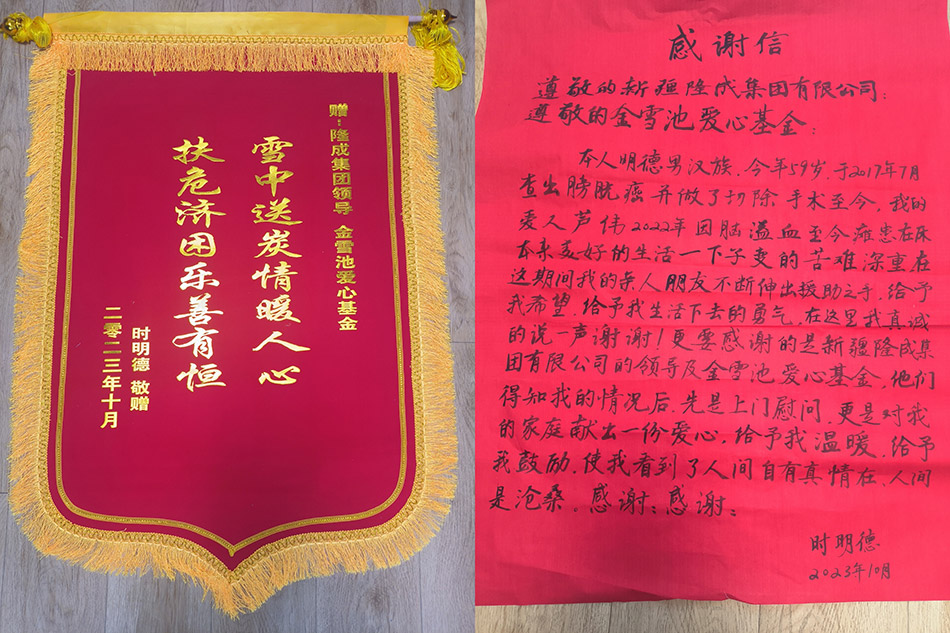 赠:隆成集团领导 金雪池爱心基金
雪中送炭情暖人心
扶危济困乐善有恒
时明德 敬赠
二零二三年十月
感谢信
尊敬的新疆隆成集团有限公司:
尊敬的金雪池爱心基金:
本人明德男汉族,今年59岁,于2017年7月
查出膀胱癌并做了切除手术至今,我的
爱人芦伟2022年因脑溢血至今瘫患在床
本来美好的生活一下子变的苦难深重在
这期间我的亲人朋友不断伸出援助之手,给予
我希望,给予我生活下去的勇气,在这里我真诚
的说一声谢谢!更要感谢的是新疆隆成集
团有限公司的领导及金雪池爱心基金,他们
得知我的情况后,先是上门慰问,更是对我
的家庭献出一份爱心,给予我温暖,给予
我鼓励,使我看到了人间自有真情在,人间
是沧桑,感谢;感谢;
时明德
2023年10月